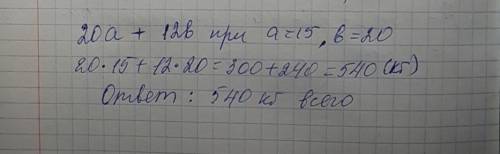 20а + 12в при а=15, в=20
20·15+12·20=300+240=540(кг)
Ответ: 540 кг всего